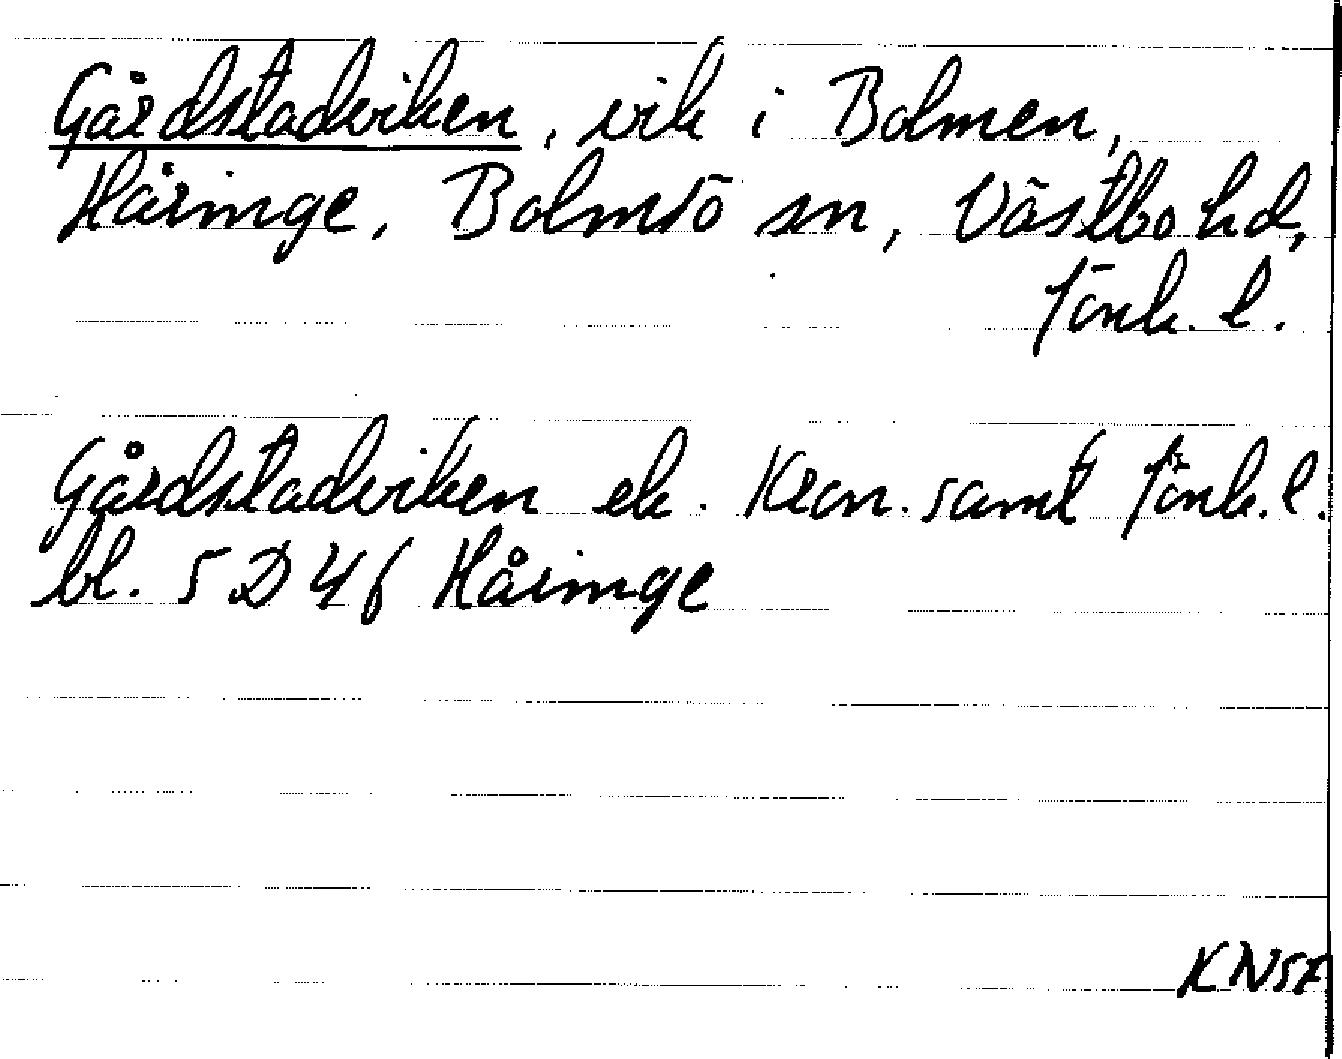 Gårdstadviken, vik i Bolmen,
Håringe, Bolmsö sn, Västbo hd,
Jönk. l.
Gårdstadviken ek. Kron. samt Jönk. l.
bl. 5 D 4 f Håringe